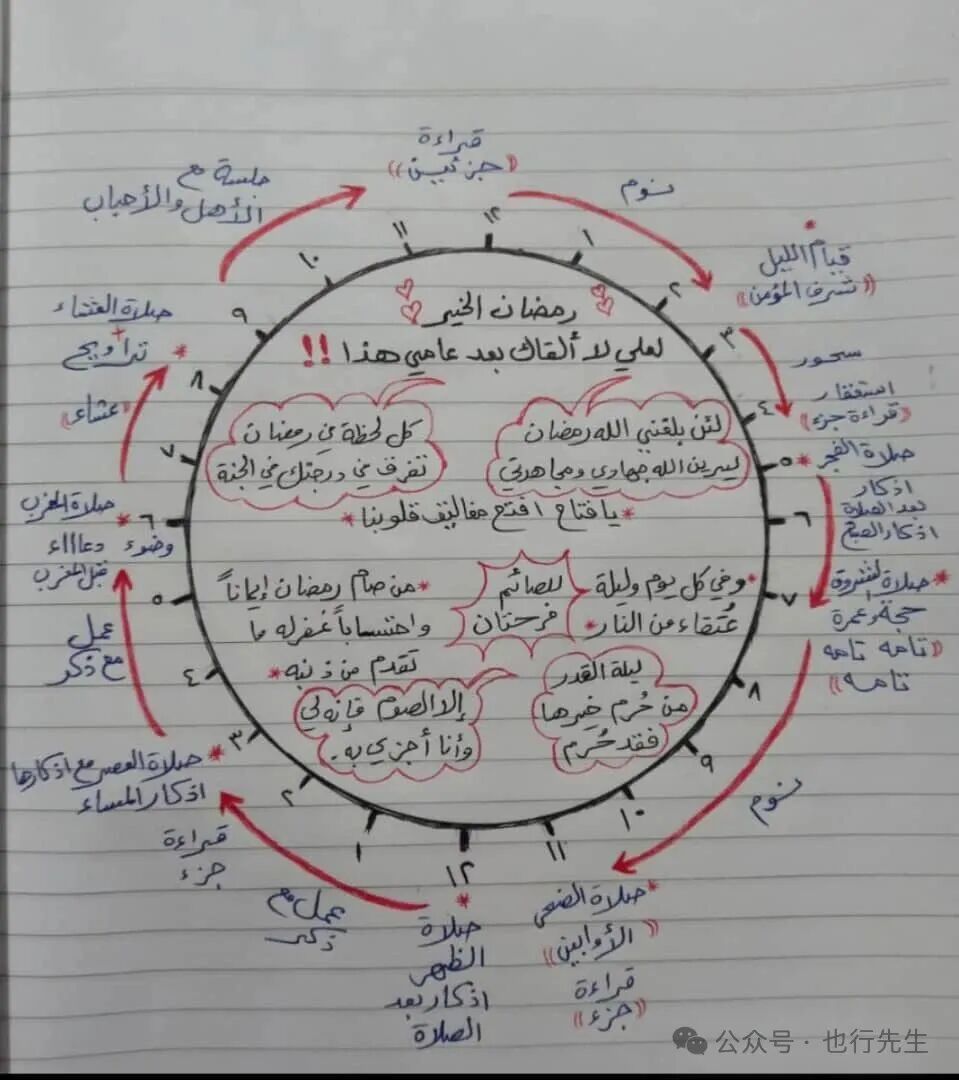 قراءة
((جزئين))
نوم
قيام الليل
((شرف المؤمن))
سحور
استغفار
((قراءة جزء))
صلاة الفجر
اذكار
بعد الصلاة
اذكار الصبح
صلاة الشروق
حجة وعمرة
((تامه تامه
تامه))
نوم
صلاة الضحى
((الأوابين))
قراءة
((جزء))
صلاة
الظهر
اذكار بعد
الصلاة
عمل مع
ذكر
قراءة
جزء
صلاة العصر مع اذكارها
اذكار المساء
عمل
مع ذكر
صلاة المغرب
وضوء دعاااء
قبل المغرب
((عشاء))
صلاة العشاء
+
تراويح
جلسة مع
الأهل والأحباب
١٢
١
٢
٣
٤
٥
٦
٧
٨
٩
١٠
١١
١٢
١
٢
٣
٤
٥
٦
٧
٨
٩
١٠
١١
رمضان الخير
لعلي لا ألقاك بعد عامي هذا !!
لئن بلغني الله رمضان
ليرين الله جهادي ومجاهدتي
كل لحظة في رمضان
تفرق في درجتك في الجنة
*يا فتاح افتح مغاليق قلوبنا*
*وفي كل يوم وليلة
عُتقاء من النار*
للصائم
فرحتان
*من صام رمضان إيماناً
واحتساباً غُفر له ما
تقدم من ذنبه*
ليلة القدر
من حُرم خيرها
فقد حُرم
إلا الصوم فإنه لي
وأنا أجزي به.
公众号 · 也行先生